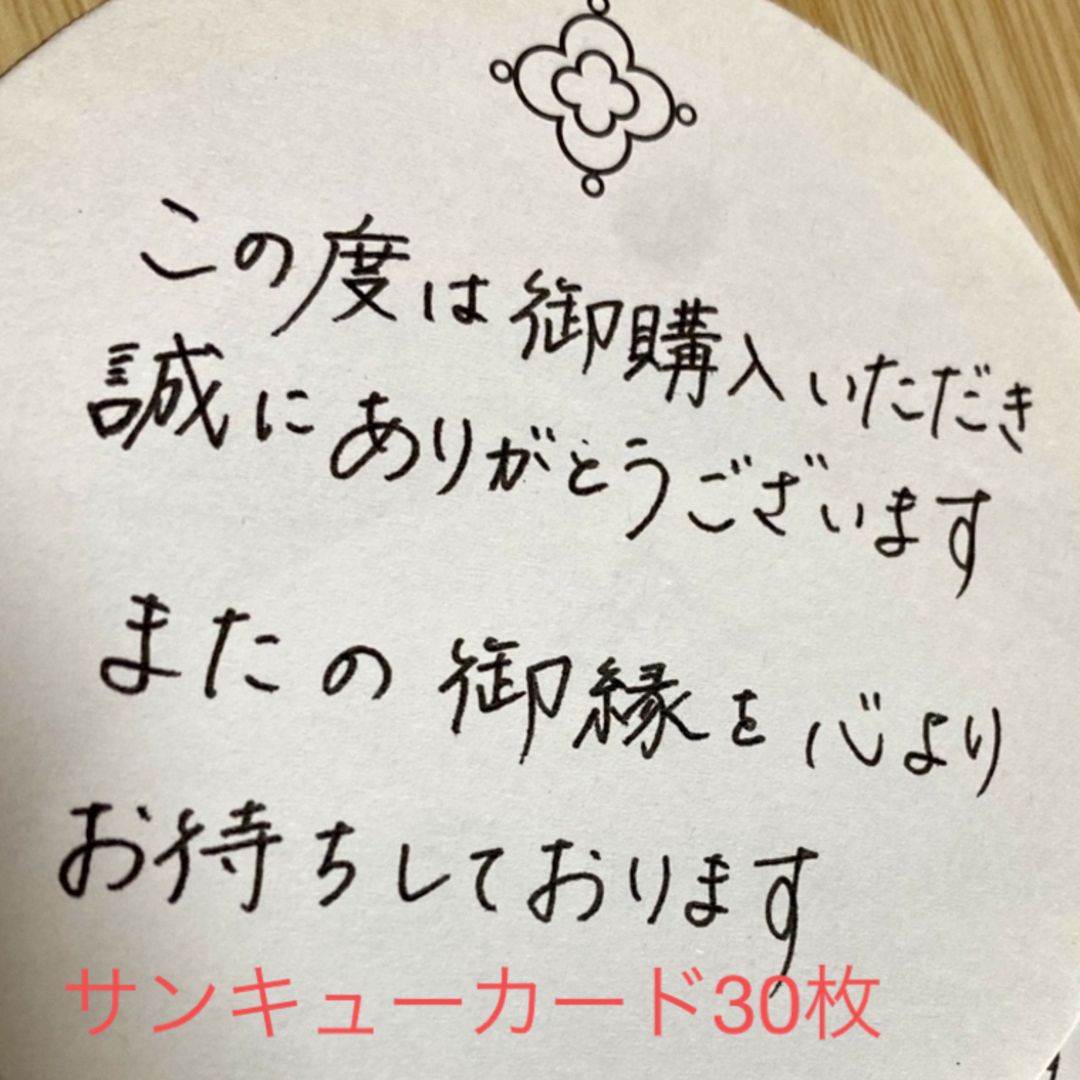 この度は御購入いただき
誠にありがとうございます
またの御縁を心より
お待ちしております
サンキューカード30枚